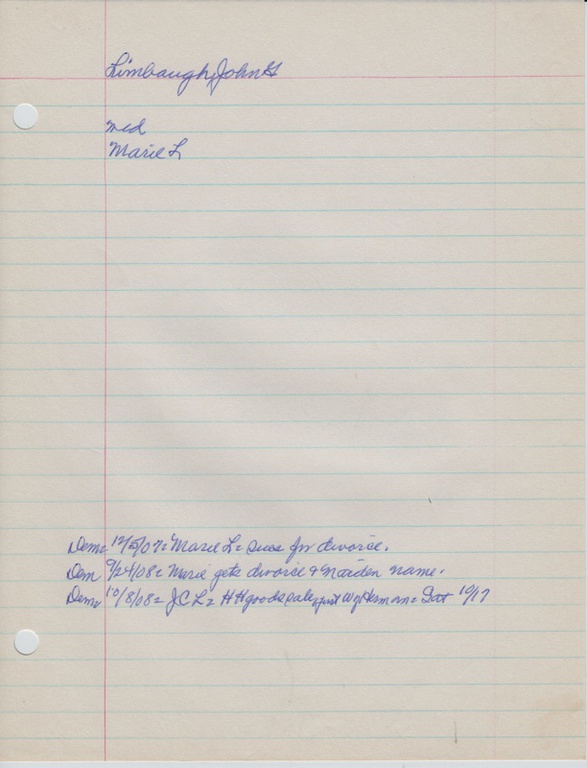 Limbaugh, John G
md
Marie L
Dem= 12/5/07= Marie L= sues for divorce.
Dem 9/24/08= Marie gets divorce & Maiden name.
Dem= 10/8/08= J C L= H H goods sale, just W of Herman= Sat 10/17